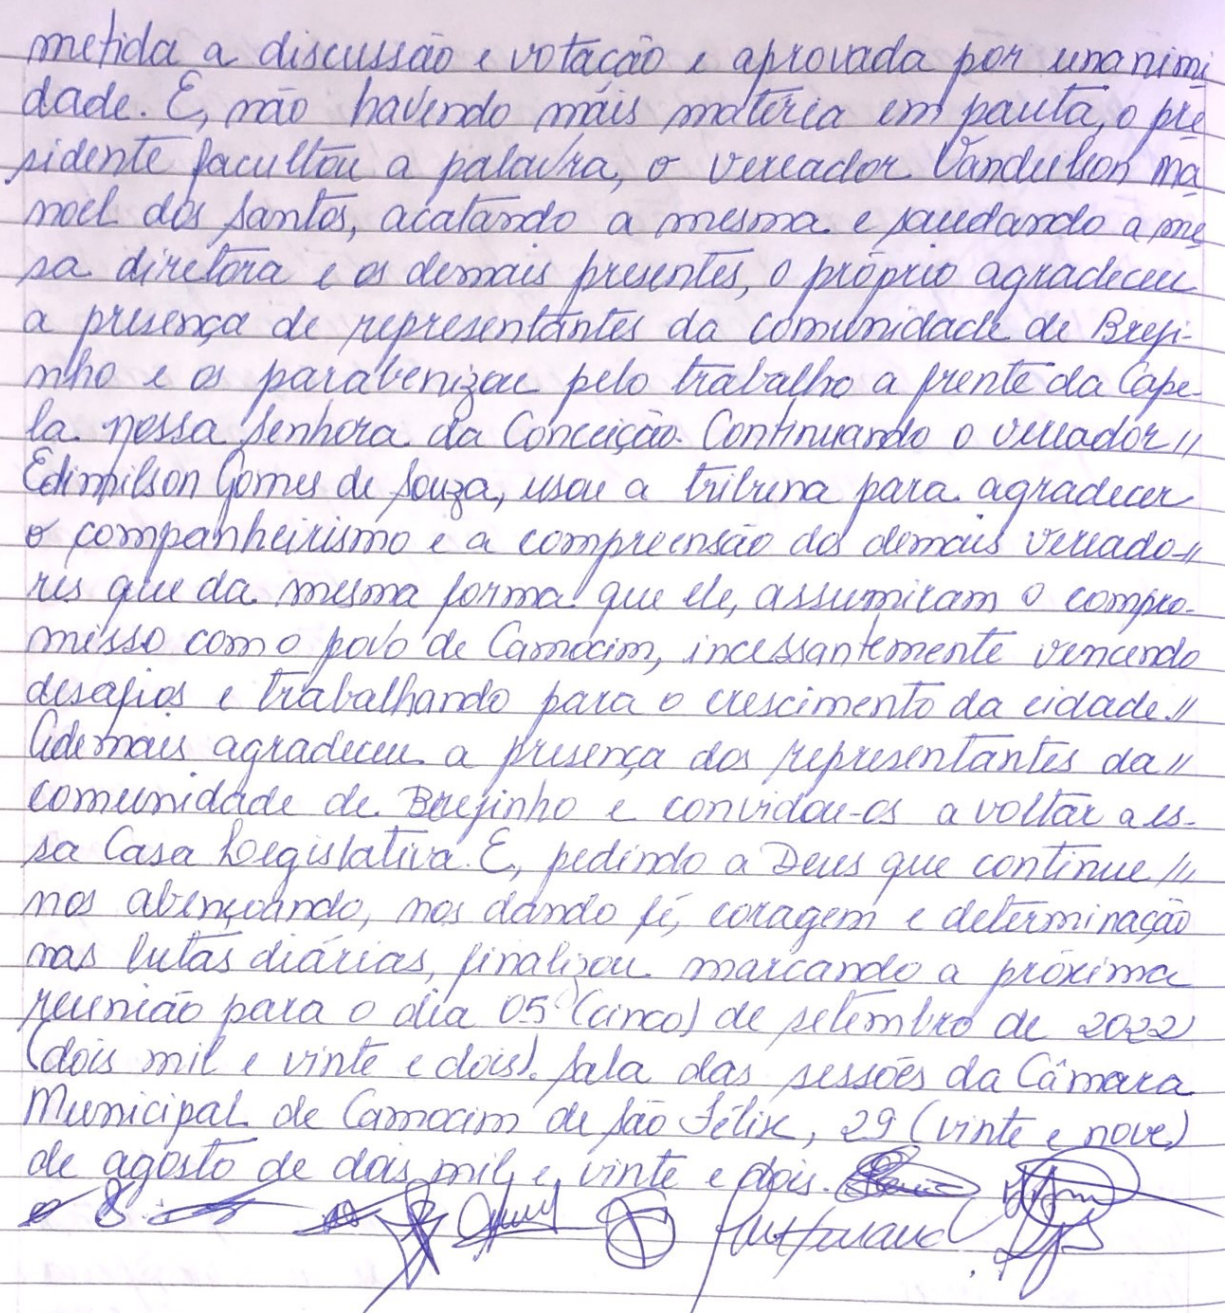 metida a discussão e votação e aprovada por unanimi
dade. E, não havendo máis matéria em pauta, o pre
sidente facultou a palavra, o vereador Vandulson Ma
noel dos Santos, acatando a mesma e saudando a me
sa diretora e os demais presentes, o próprio agradeceu
a presença de representantes da comunidade de Breji-
nho e os parabenizou pelo trabalho a frente da Cape-
la nossa Senhora da Conceição. Continuando o vereador //
Edimilson Gomes de Souza, usou a tribuna para agradecer
o companheirismo e a compreensão dos demais vereado-//
res que da mesma forma que ele, assumiram o compro-
misso com o povo de Camocim, incessantemente vencendo
desafios e trabalhando para o crescimento da cidade. //
Ademais agradeceu a presença dos representantes da //
comunidade de Brejinho e convidou-os a voltar a es-
sa Casa Legislativa. E, pedindo a Deus que continue ///
nos abençoando, nos dando fé, coragem e determinação
nas lutas diárias, finalizou marcando a próxima
reunião para o dia 05 (cinco) de setembro de 2022
(dois mil e vinte e dois). Sala das sessões da Câmara
Municipal de Camocim de São Félix, 29 (vinte e nove)
de agosto de dois mil e vinte e dois.